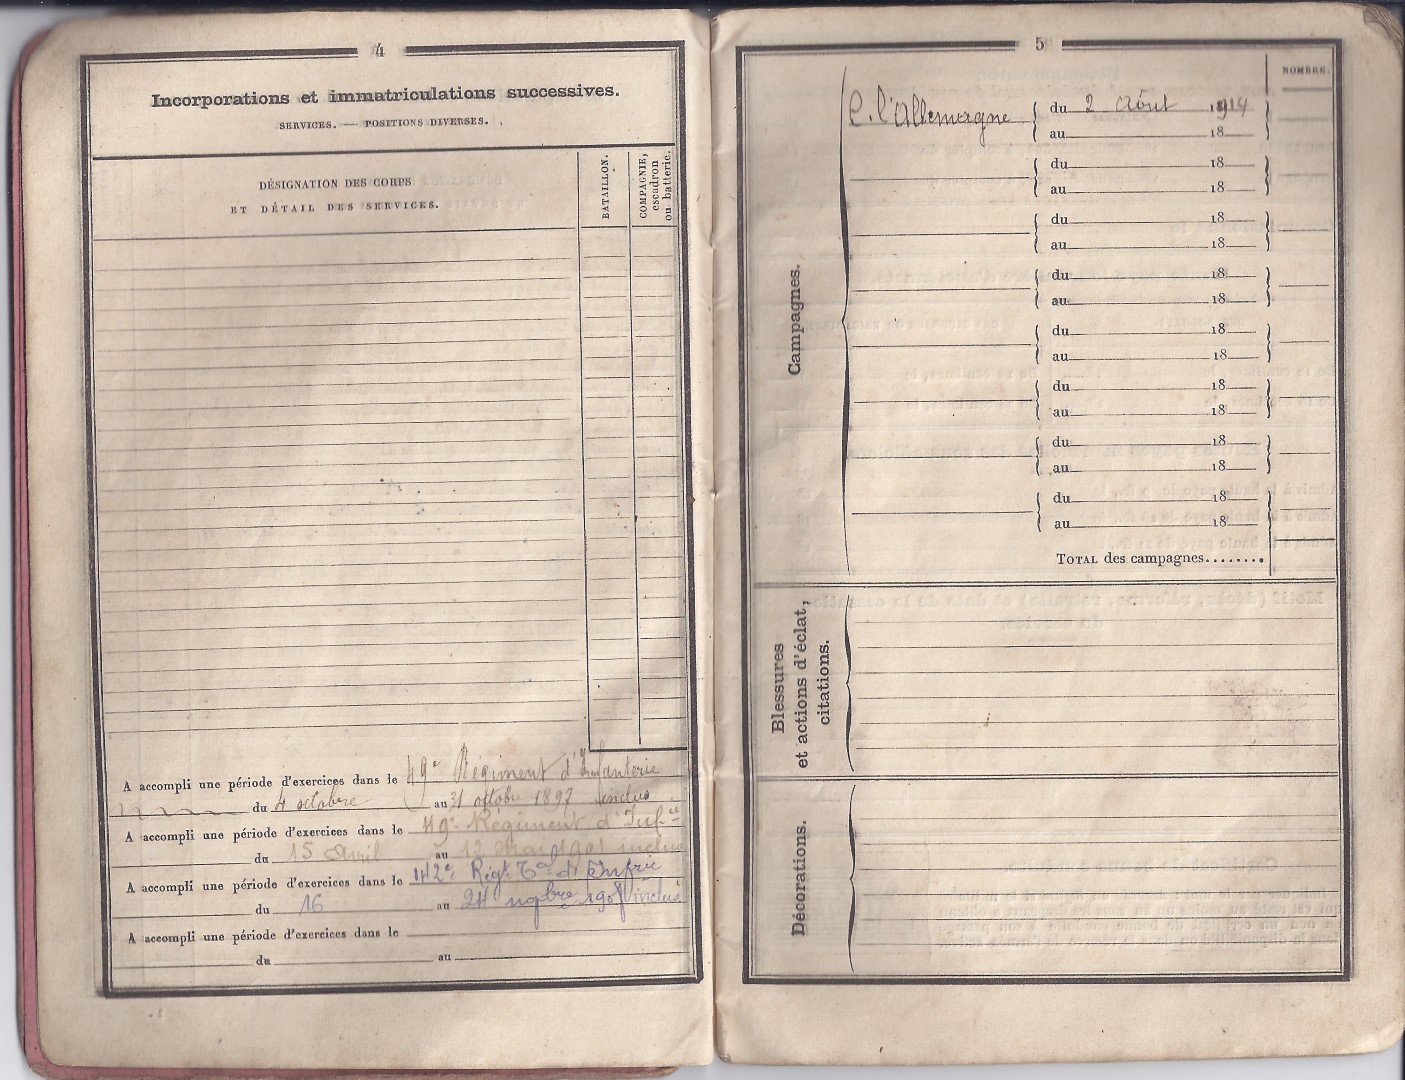 4
Incorporations et immatriculations successives.
SERVICES. — POSITIONS DIVERSES.
DÉSIGNATION DES CORPS
ET DÉTAIL DES SERVICES.
BATAILLON.
COMPAGNIE,
escadron
ou batterie.
A accompli une période d'exercices dans le 49e Régiment d'Infanterie
du 4 octobre au 31 octobre 1897 inclus
A accompli une période d'exercices dans le 49e Régiment d'Infie
du 15 avril au 12 mai 1901 inclus
A accompli une période d'exercices dans le 142e Régt Tal d'Infrie
du 16 au 24 nopbre 190 inclus
A accompli une période d'exercices dans le
du au
5
NOMBRE.
Campagnes.
C. l'Allemagne du 2 Août 1914
au 18
du 18
au 18
du 18
au 18
du 18
au 18
du 18
au 18
du 18
au 18
du 18
au 18
du 18
au 18
TOTAL des campagnes........
Blessures
et actions d'éclat,
citations.
Décorations.